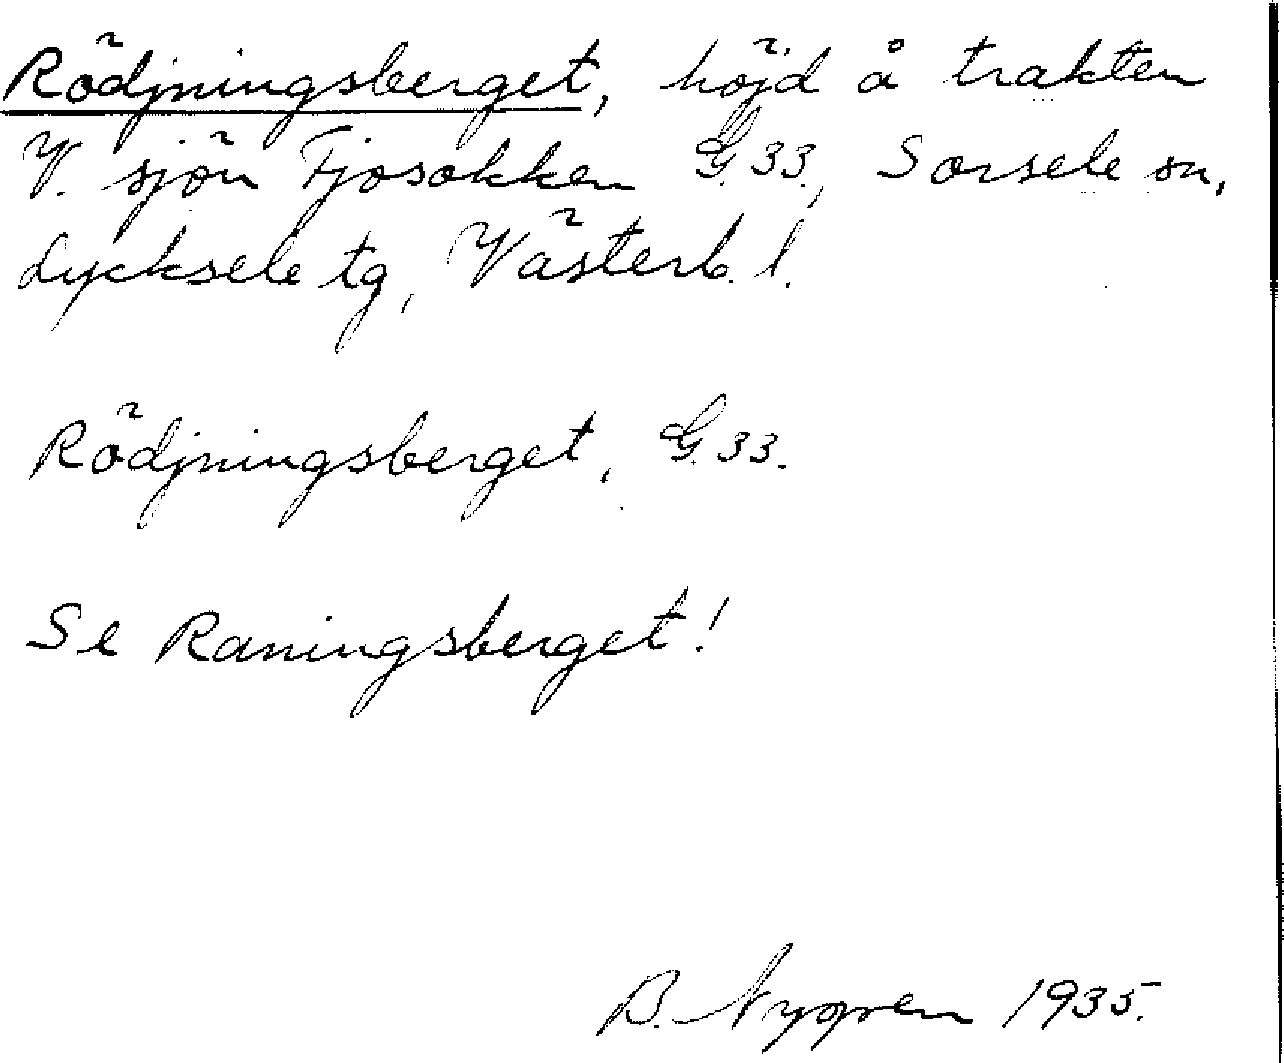 Rödjningsberget, höjd å trakten
V. sjön Tjosokken G.33., Sorsele sn,
Lycksele tg, Västerb. l.
Rödjningsberget, G.33.
Se Raningsberget!
B. Nygren 1935.